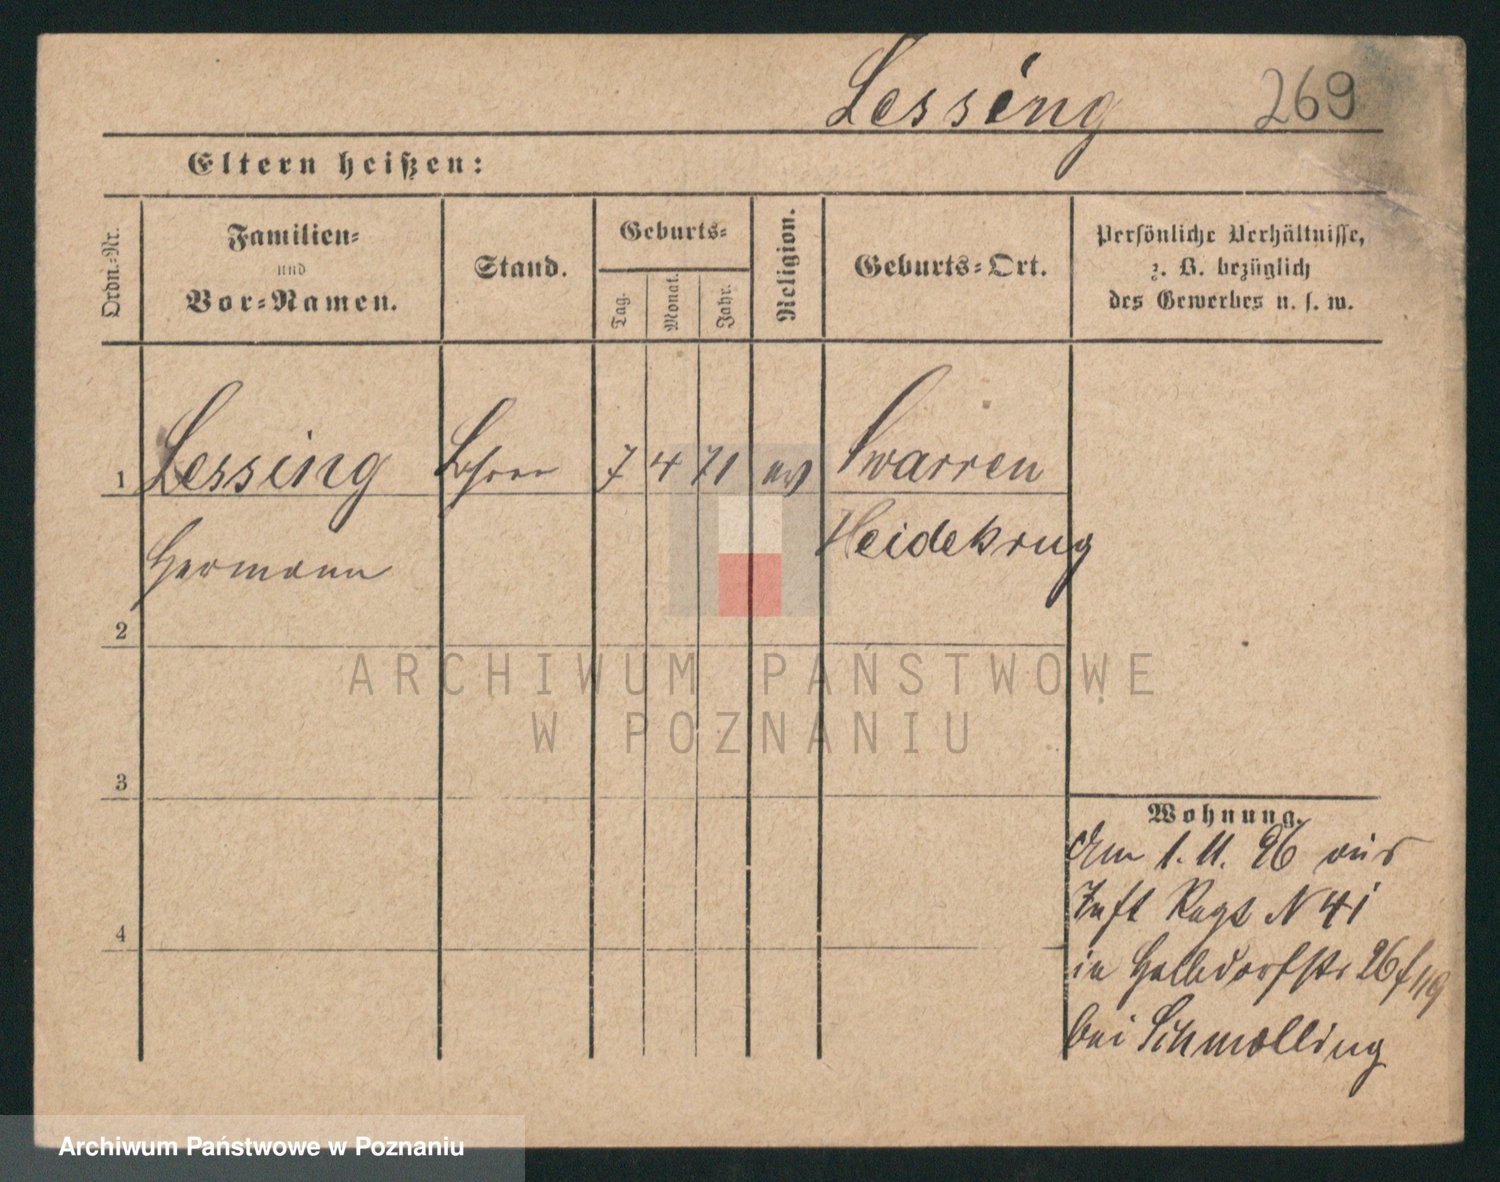 Lessing 269
Eltern heißen:
Ordn.-Nr.
Familien-
und
Vor-Namen.
Stand.
Geburts-
Tag.
Monat.
Jahr.
Religion.
Geburts-Ort.
Persönliche Verhältnisse,
z. B. bezüglich
des Gewerbes u. s. w.
1 Lessing 7 4 71 ev Swarren
Hermann Heidekrug
2
3
4
Wohnung.
Am 1. 11. 96 aus
Inft Regt N 41
in Halbdorfstr 26
bei Schmolling
ARCHIWUM PAŃSTWOWE
W POZNANIU
Archiwum Państwowe w Poznaniu